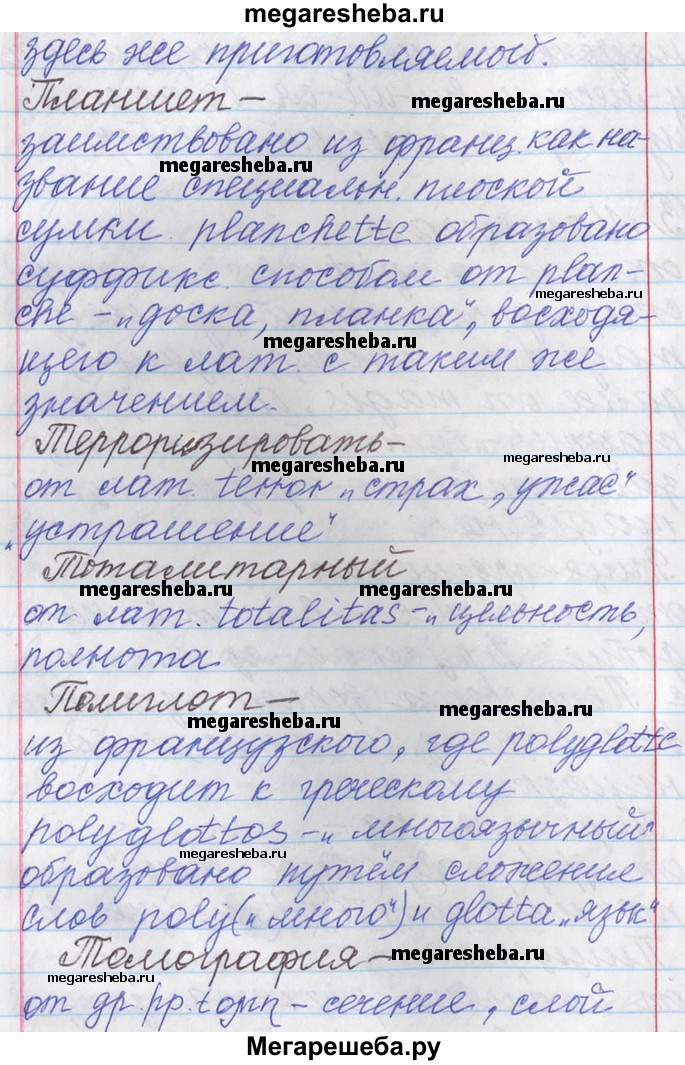 megaresheba.ru
здесь же приготовляемой.
Планшет –
megaresheba.ru
заимствовано из франц. как на-
megaresheba.ru
звание специальн. плоской
сумки. planchette образовано
суффикс. способом от plan-
megaresheba.ru
che – „доска, планка", восходя-
megaresheba.ru
щего к лат. с таким же
значением.
Терроризировать –
megaresheba.ru
megaresheba.ru
от лат. terror „страх", ужас"
„устрашение"
Тоталитарный
megaresheba.ru
от лат. totalitas – „цельность,
полнота
Полиглот –
megaresheba.ru
megaresheba.ru
из французского, где polyglotte
восходит к греческому
polyglottos – „многоязычный"
megaresheba.ru
образовано путём сложения
слов poly („много") и glotta „язык"
Томография –
megaresheba.ru
megaresheba.ru
от др. гр. – сечение, слой
Мегарешеба.ру